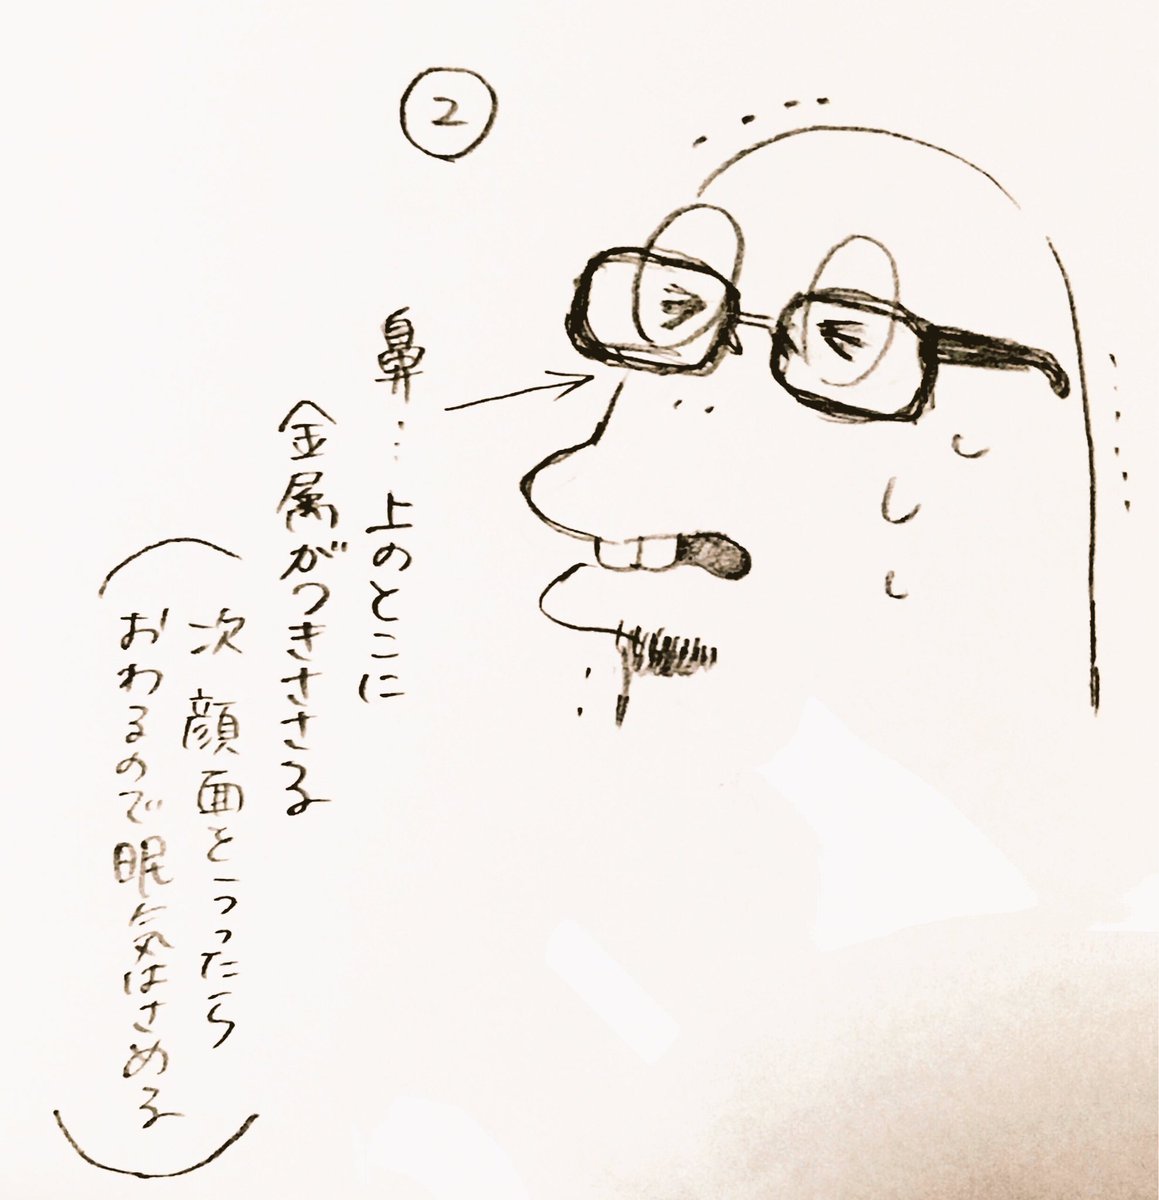 ②
鼻…上のとこに
金属がつきささる
（次 顔面とったら
おわるので眠気はさめる）